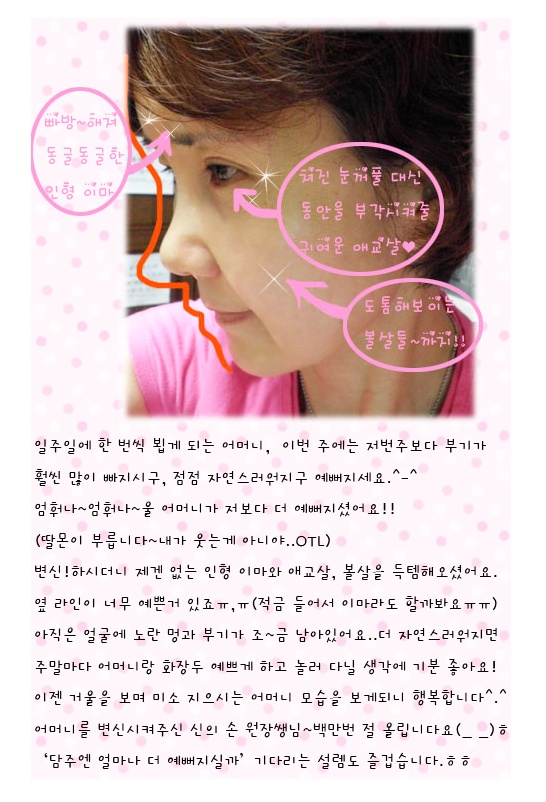 빠방~해져
동글동글한
인형 이마
쳐진 눈꺼풀 대신
동안을 부각시켜줄
귀여운 애교살♥
도톰해보이는
볼살들~까지!!
일주일에 한 번씩 뵙게 되는 어머니, 이번 주에는 저번주보다 부기가
훨씬 많이 빠지시구, 점점 자연스러워지구 예뻐지세요.^-^
엄훠나~엄훠나~울 어머니가 저보다 더 예뻐지셨어요!!
(딸몬이 부릅니다~내가 웃는게 아니야..OTL)
변신!하시더니 제겐 없는 인형 이마와 애교살, 볼살을 득템해오셨어요.
옆 라인이 너무 예쁜거 있죠ㅠ,ㅠ(적금 들어서 이마라도 할까봐요ㅠㅠ)
아직은 얼굴에 노란 멍과 부기가 조~금 남아있어요..더 자연스러워지면
주말마다 어머니랑 화장두 예쁘게 하고 놀러 다닐 생각에 기분 좋아요!
이젠 거울을 보며 미소 지으시는 어머니 모습을 보게되니 행복합니다^.^
어머니를 변신시켜주신 신의 손 원장쌩님~백만번 절 올립니다요(_ _)ㅎ
‘담주엔 얼마나 더 예뻐지실까’ 기다리는 설렘도 즐겁습니다.ㅎㅎ